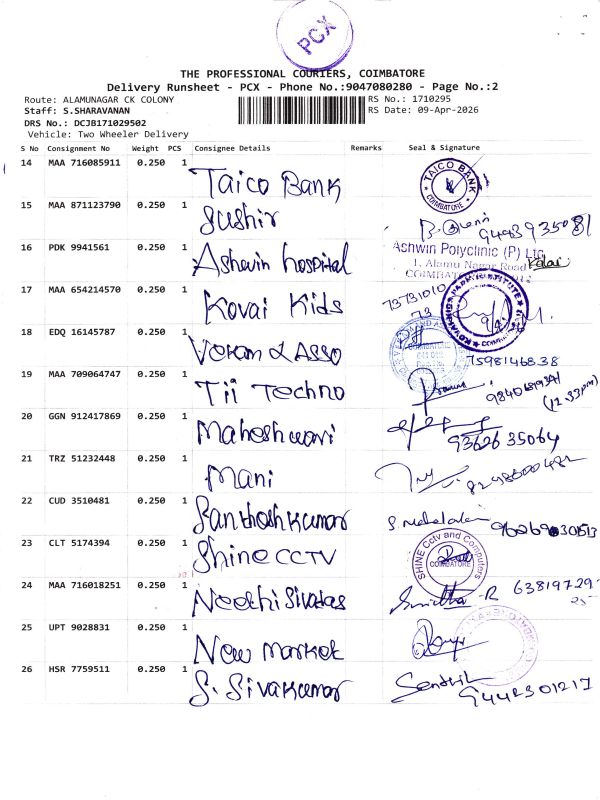 PCX
THE PROFESSIONAL COURIERS, COIMBATORE
Delivery Runsheet - PCX - Phone No.:9047080280 - Page No.:2
Route: ALAMUNAGAR CK COLONY RS No.: 1710295
Staff: S.SHARAVANAN RS Date: 09-Apr-2026
DRS No.: DCJB171029502
Vehicle: Two Wheeler Delivery
S No Consignment No Weight PCS Consignee Details Remarks Seal & Signature
14 MAA 716085911 0.250 1 Taico Bank TAICO BANK COIMBATORE
15 MAA 871123790 0.250 1 Sushir
16 PDK 9941561 0.250 1 Ashwin hospital Ashwin Polyclinic (P) Ltd
1, Alamu Nagar Road Kalai
17 MAA 654214570 0.250 1 Kovai Kids 73731010
73
18 EDQ 16145787 0.250 1 7598146838
19 MAA 709064747 0.250 1 Tii Techno (12.33pm)
20 GGN 912417869 0.250 1 Maheshwari 9362635064
21 TRZ 51232448 0.250 1 Mani
22 CUD 3510481 0.250 1 Santhoshkumar
23 CLT 5174394 0.250 1 Shine CCTV SHINE Cctv and Computers COIMBATORE
24 MAA 716018251 0.250 1 Needhi Sivadas 63819729
25 UPT 9028831 0.250 1 New Market
26 HSR 7759511 0.250 1 S. Sivakumar Senthil
9442301217